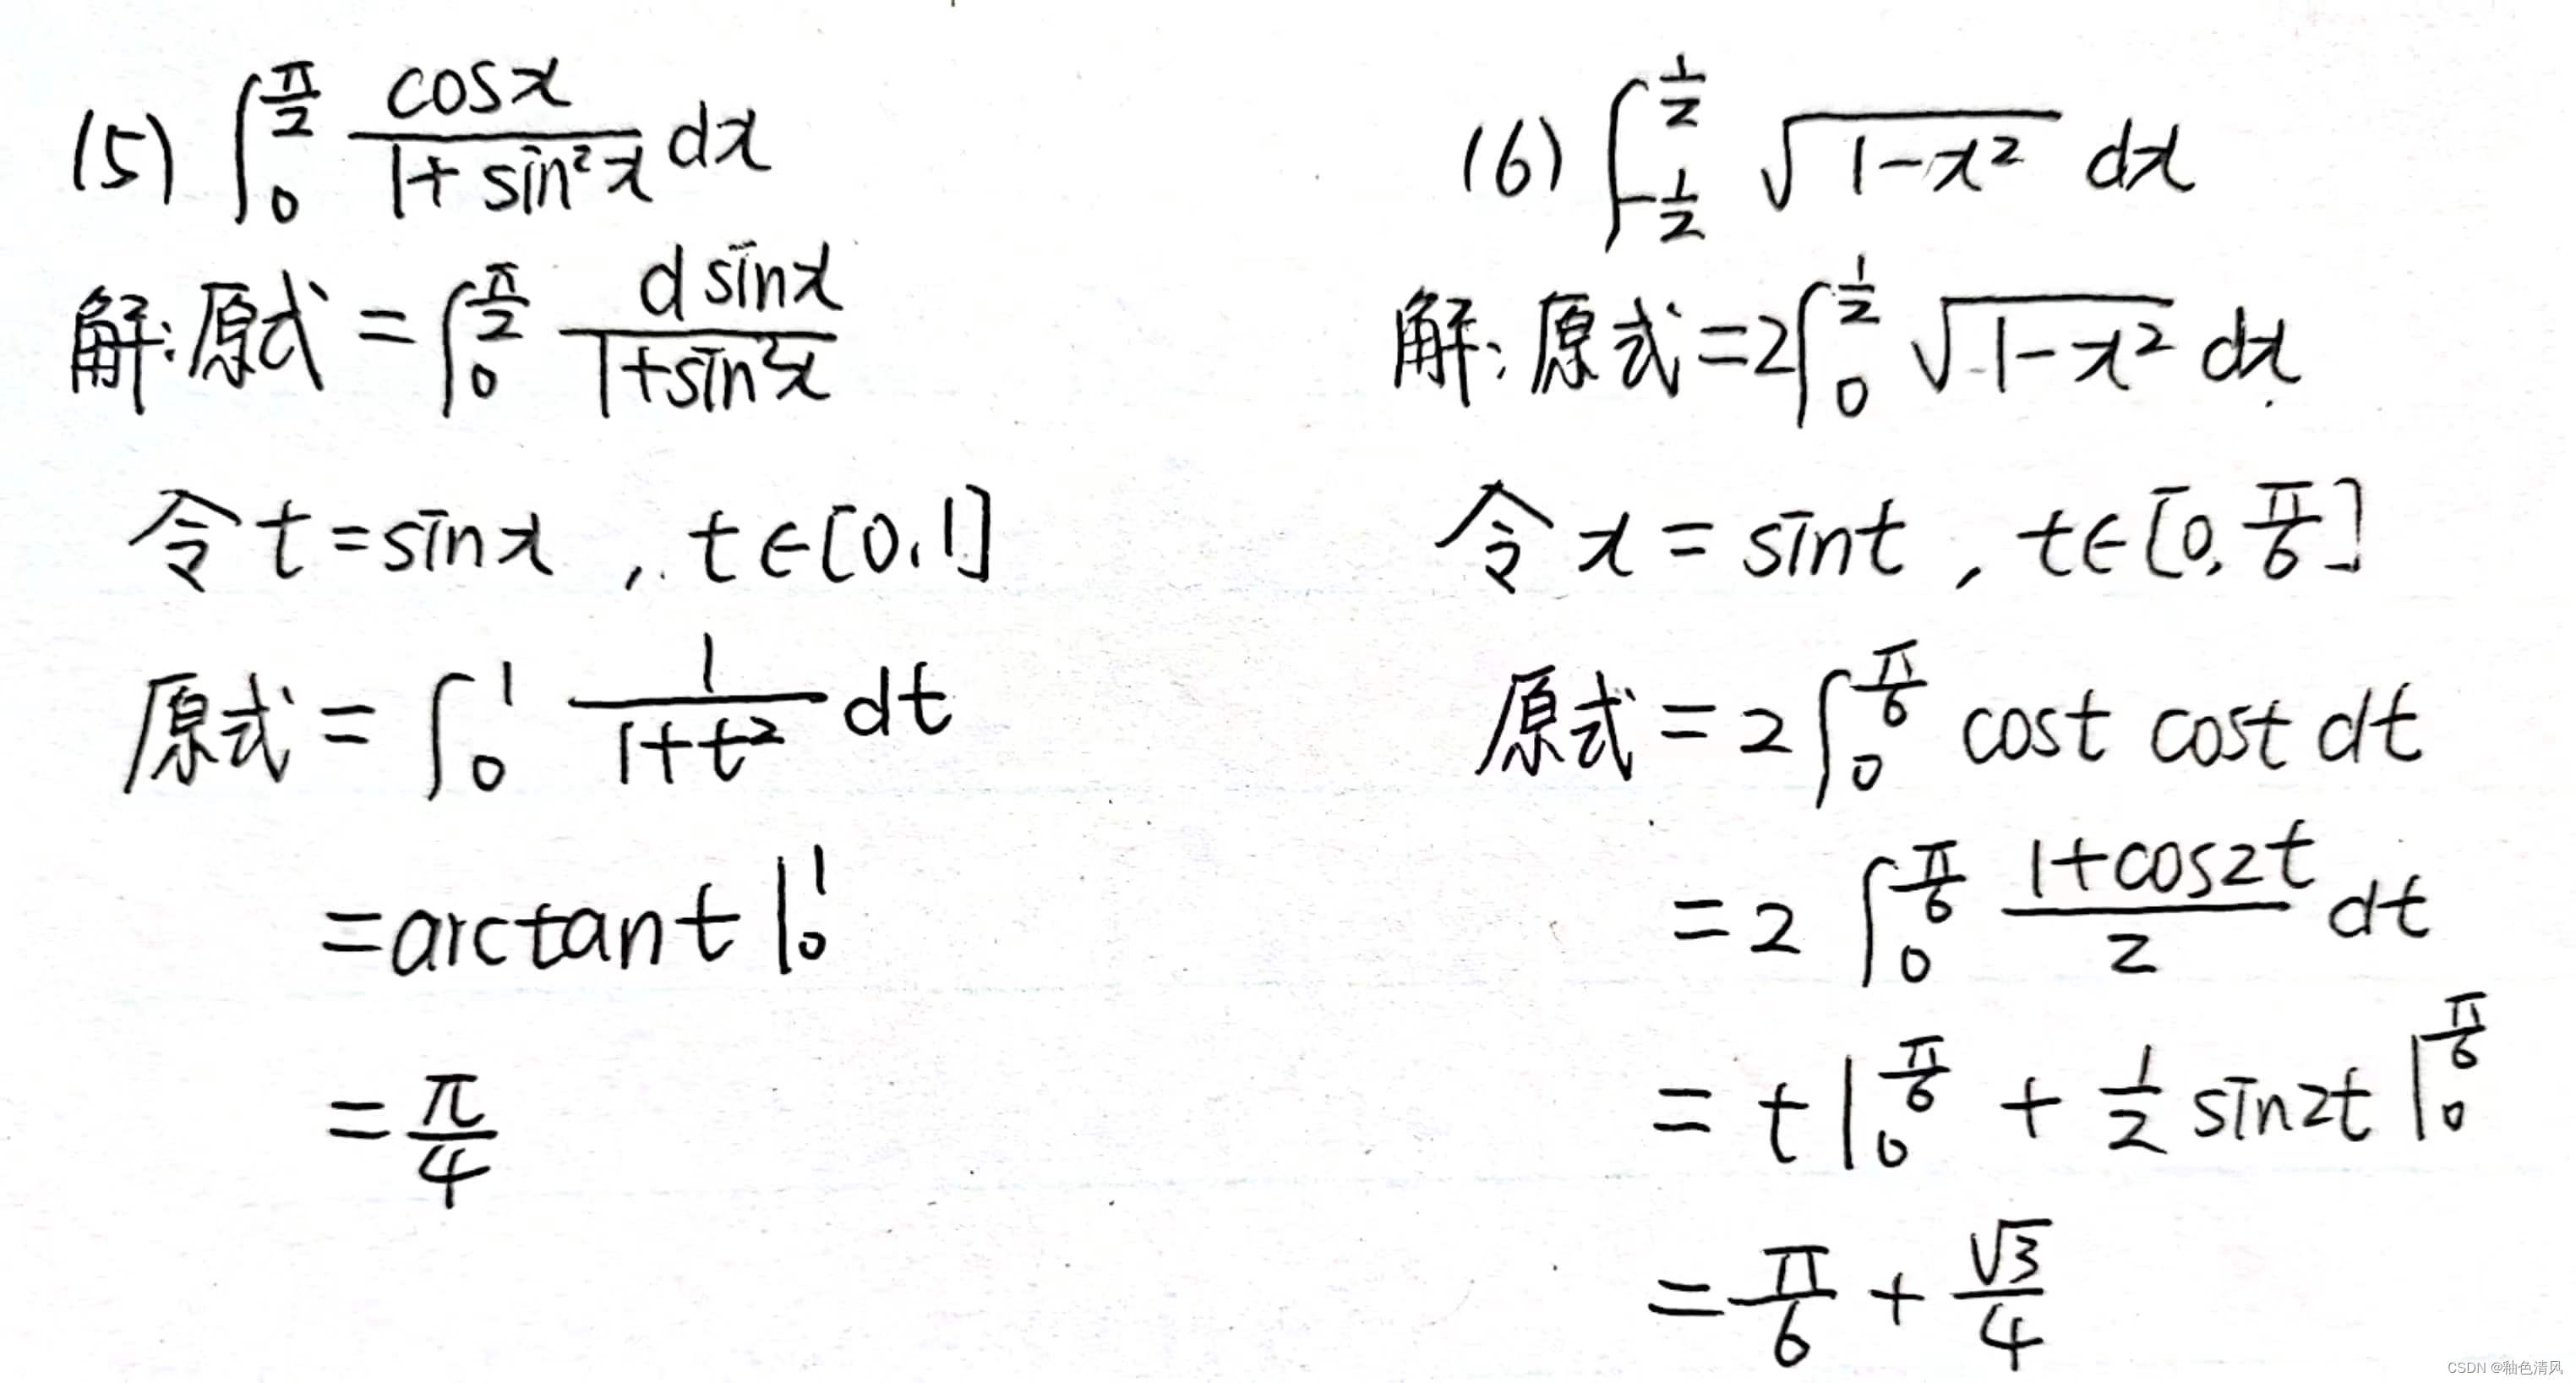 (5) ∫₀^(π/2) cosx/(1+sin²x) dx
解:原式=∫₀^(π/2) dsinx/(1+sin²x)
令t=sinx,t∈[0,1]
原式=∫₀¹ 1/(1+t²) dt
=arctant|₀¹
=π/4
(6) ∫_(-1/2)^(1/2) √(1-x²) dx
解:原式=2∫₀^(1/2) √(1-x²) dx
令x=sint,t∈[0,π/6]
原式=2∫₀^(π/6) cost cost dt
=2∫₀^(π/6) (1+cos2t)/2 dt
=t|₀^(π/6)+1/2 sin2t|₀^(π/6)
=π/6+√3/4
CSDN @釉色清风